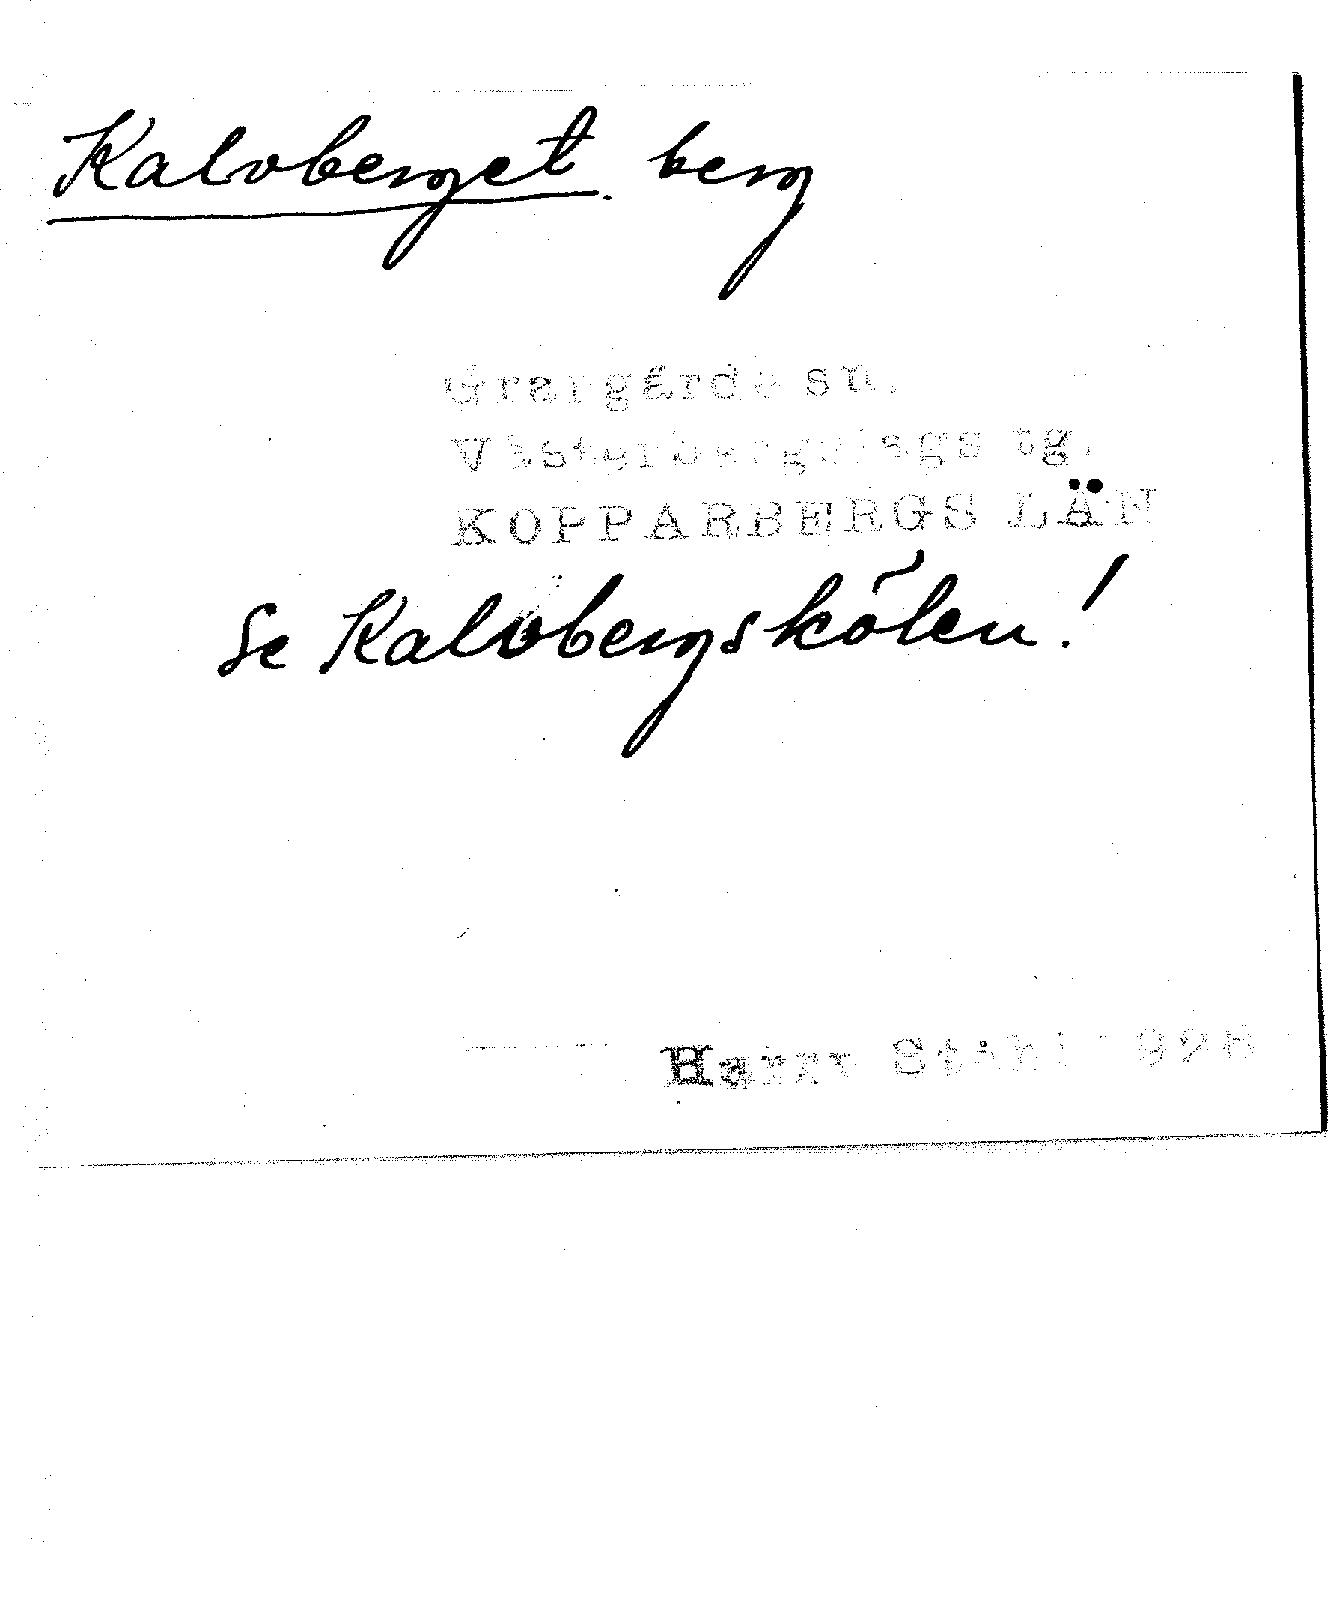 Kalvberget. berg
Grangärde sn.
Västerbergslags tg.
KOPPARBERGS LÄN
Se Kalvbergskölen!
Harry Ståhl 1928